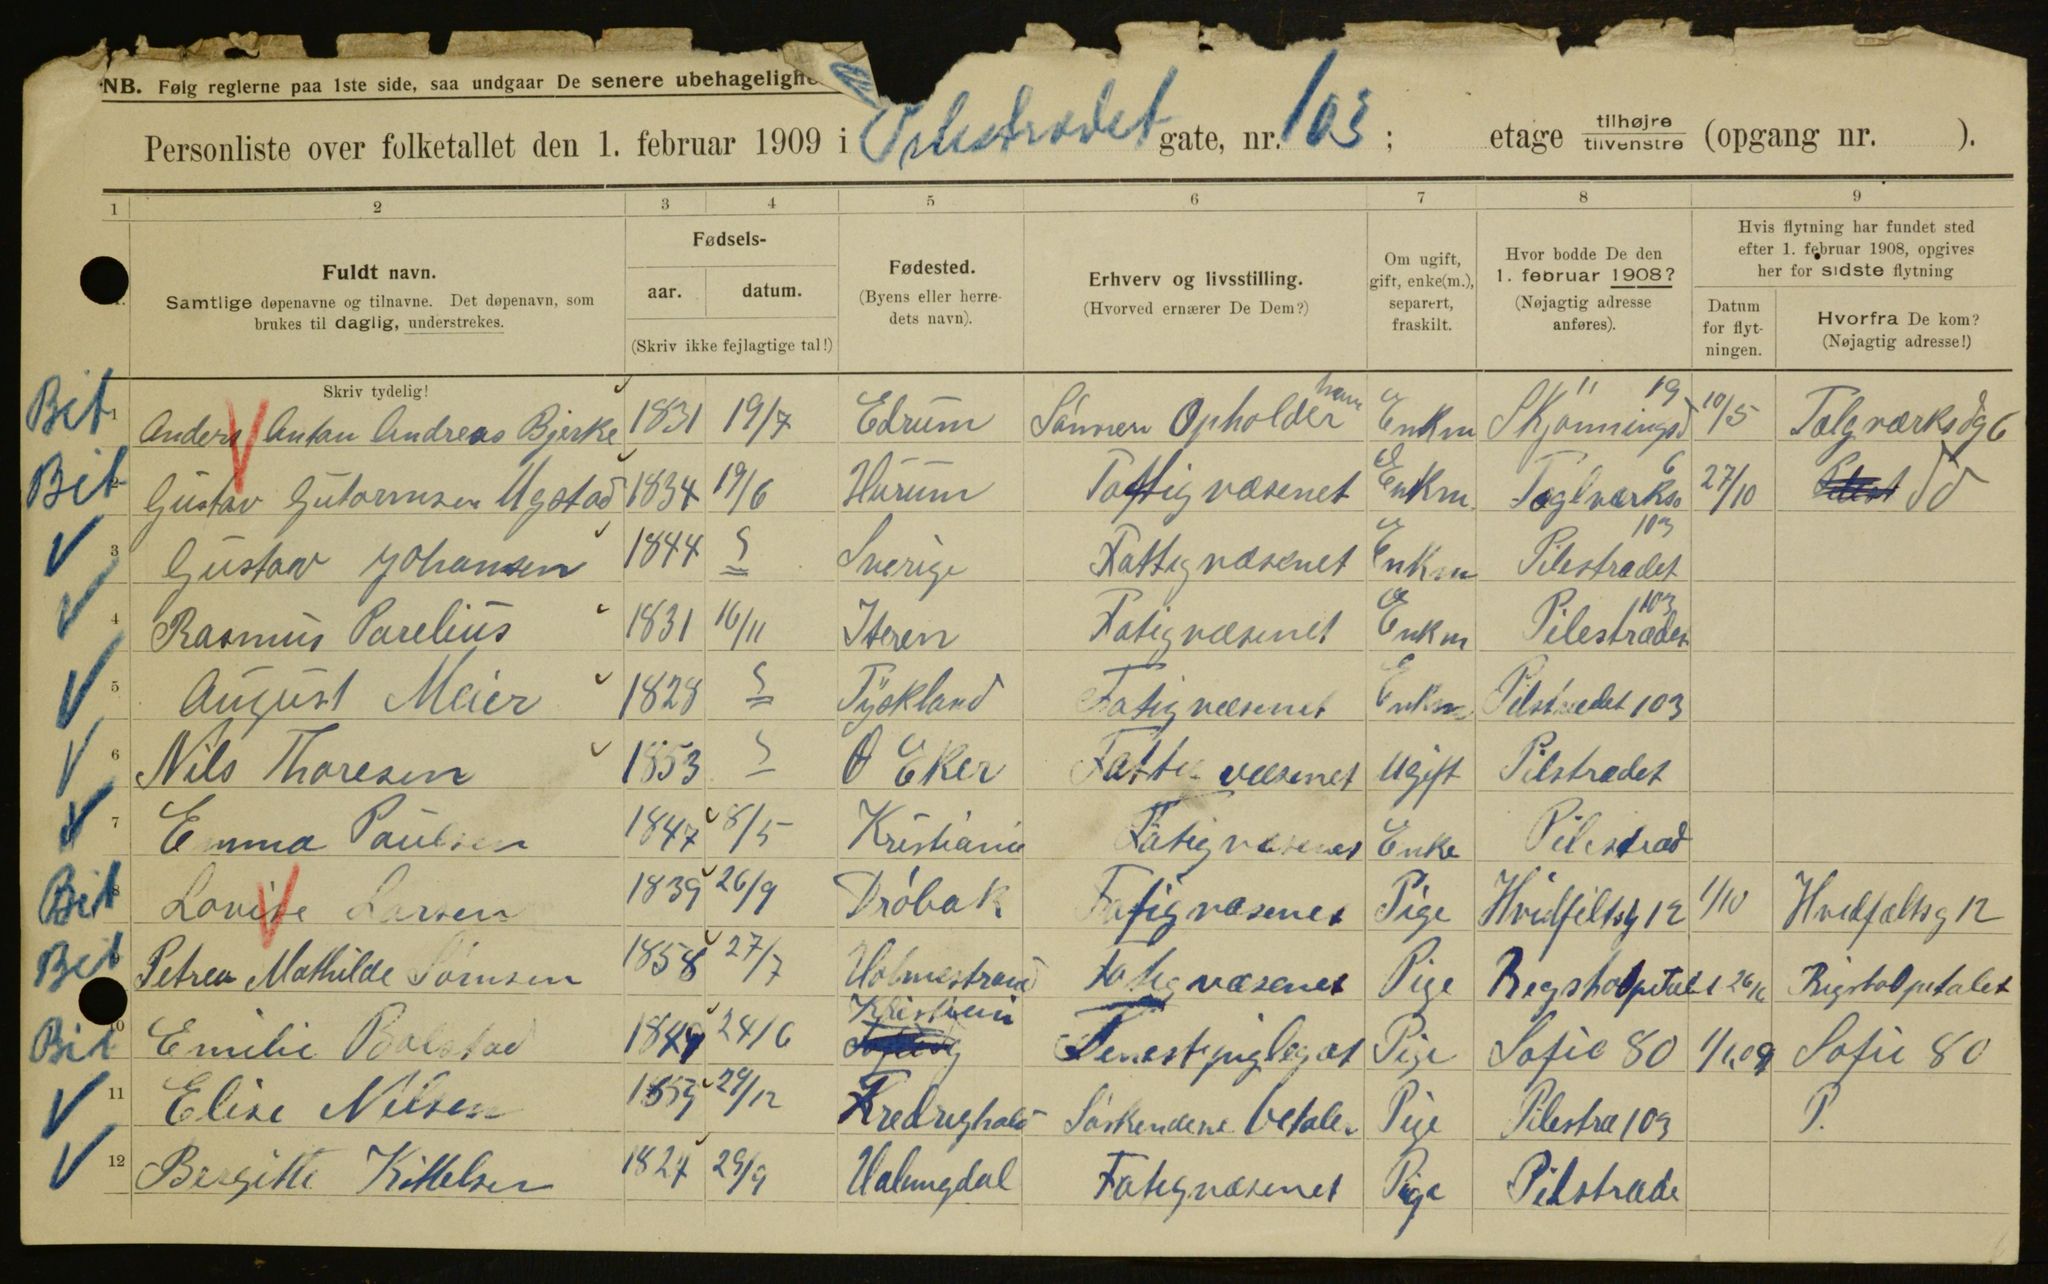 NB. Følg reglerne paa 1ste side, saa undgaar De senere ubehagelighe
Personliste over folketallet den 1. februar 1909 i Pilestrædet gate, nr. 103; etage tilhøjre tilvenstre (opgang nr. ).
1 2 3 4 5 6 7 8 9
Fuldt navn.
Samtlige døpenavne og tilnavne. Det døpenavn, som
brukes til daglig, understrekes.
Skriv tydelig!
Fødsels-
aar. datum.
(Skriv ikke fejlagtige tal!)
Fødested.
(Byens eller herre-
dets navn).
Erhverv og livsstilling.
(Hvorved ernærer De Dem?)
Om ugift,
gift, enke(m.),
separert,
fraskilt.
Hvor bodde De den
1. februar 1908?
(Nøjagtig adresse
anføres).
Hvis flytning har fundet sted
efter 1. februar 1908, opgives
her for sidste flytning
Datum
for flyt-
ningen.
Hvorfra De kom?
(Nøjagtig adresse!)
Bet 1 Anders Antau Andreas Bjerke 1831 19/7 Edrum Sønnen Opholder ham Enkm Skjønningsd 19 10/5 Tølgværksdg 6
Bet 2 Gustav Gutormsen Ugstad 1834 19/6 Hurum Fattigvæsenet Enkm. Teglværks 6 27/10
3 Gustav Johansen 1844 ? Sverige Fattigvæsenet Enkm Pilestrædet 103
4 Rasmus Parelius 1831 16/11 Fatigvæsenet Enkm Pilestrædet 103
5 August Meier 1828 ? Tyskland Fatigvæsenet Enkm Pilstrædet 103
6 Nils Thoresen 1853 ? Ø Eker Fattigvæsenet Ugift Pilstrædet
7 Emma Paulsen 1847 8/5 Kristiania Fatigvæsenet Enke Pilestræd
Bet 8 Lovise Larsen 1839 26/9 Drøbak Fatigvæsenet Pige Hvidfeltsg 12 1/10 Hvidfæltsg 12
Bet 9 Petrea Mathilde Sørnsen 1858 27/7 Holmestrand Fatigvæsenet Pige Regshospitalet 26/ Rigshospitalet
Bet 10 Emilie Bolstad 1849 24/6 Kristiani Pige Sofie 80 1/1 09 Sofie 80
11 Elise Nilsen 1859 29/12 Fredrighald Søskendene betaler Pige Pilestræ 103 P.
12 Bergitte Kittelsen 1827 29/9 Halingdal Fatigvæsenet Pige Pilstræde